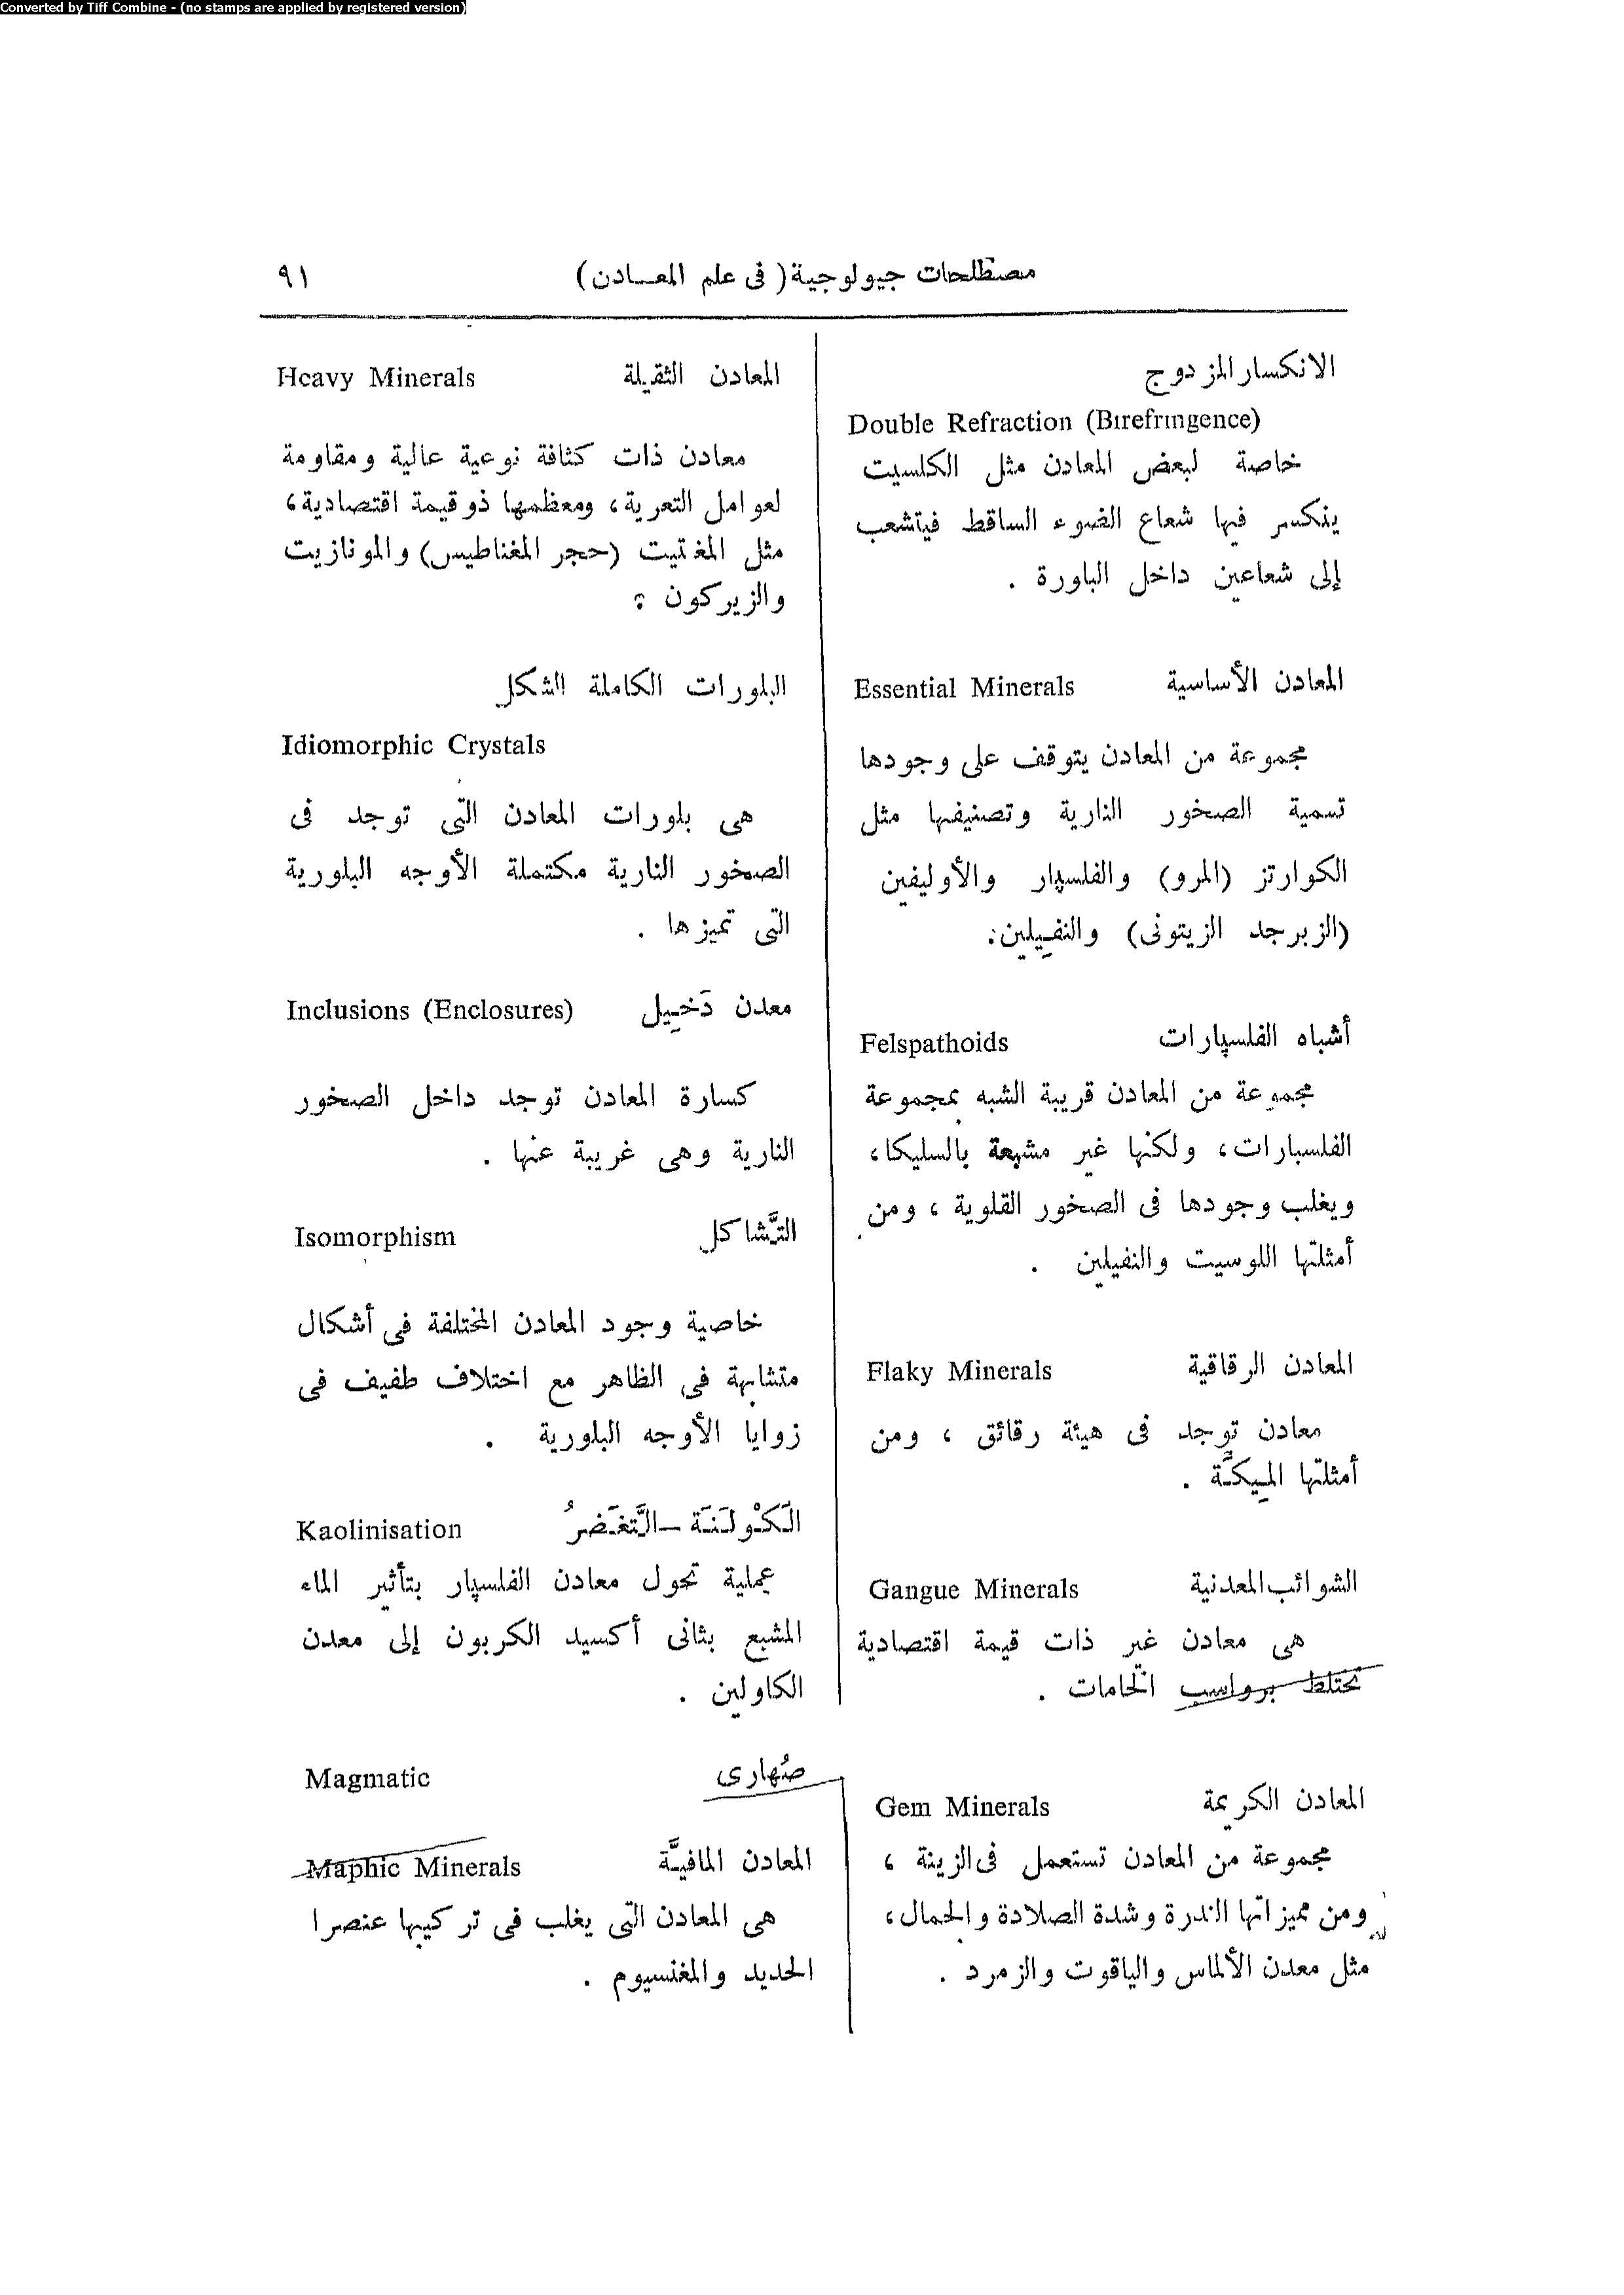 Converted by Tiff Combine - (no stamps are applied by registered version)
مصطلحات جيولوجية (فى علم المعـادن)
٩١
الانكسار المزدوج
Double Refraction (Birefringence)
خاصة لبعض المعادن مثل الكلسيت
ينكسر فيها شعاع الضوء الساقط فيتشعب
إلى شعاعين داخل البلورة .
المعادن الأساسية Essential Minerals
مجموعة من المعادن يتوقف على وجودها
تسمية الصخور النارية وتصنيفها مثل
الكوارتز (المرو) والفلسپار والأوليفين
(الزبرجد الزيتونى) والنفيلين.
أشباه الفلسپارات Felspathoids
مجموعة من المعادن قريبة الشبه بمجموعة
الفلسبارات، ولكنها غير مشبعة بالسليكا،
ويغلب وجودها فى الصخور القلوية ، ومن
أمثلتها اللوسيت والنفيلين .
المعادن الرقاقية Flaky Minerals
معادن توجد فى هيئة رقائق ، ومن
أمثلتها المِيكَّة .
الشوائب المعدنية Gangue Minerals
هى معادن غير ذات قيمة اقتصادية
تختلط برواسب الخامات .
المعادن الكريمة Gem Minerals
مجموعة من المعادن تستعمل فى الزينة ،
ومن مميزاتها الندرة وشدة الصلادة والجمال،
مثل معدن الألماس والياقوت والزمرد .
المعادن الثقيلة Heavy Minerals
معادن ذات كثافة نوعية عالية ومقاومة
لعوامل التعرية، ومعظمها ذو قيمة اقتصادية،
مثل المغنتيت (حجر المغناطيس) والمونازيت
والزيركون .
البلورات الكاملة الشكل
Idiomorphic Crystals
هى بلورات المعادن التى توجد فى
الصخور النارية مكتملة الأوجه البلورية
التى تميزها .
معدن دَخِيل Inclusions (Enclosures)
كسارة المعادن توجد داخل الصخور
النارية وهى غريبة عنها .
التَّشاكل Isomorphism
خاصية وجود المعادن المختلفة فى أشكال
متشابهة فى الظاهر مع اختلاف طفيف فى
زوايا الأوجه البلورية .
الَكَوْلَنَة – التَّغَضرُ Kaolinisation
عملية تحول معادن الفلسپار بتأثير الماء
المشبع بثانى أكسيد الكربون إلى معدن
الكاولين .
صُهارى Magmatic
المعادن المافيَّة Maphic Minerals
هى المعادن التى يغلب فى تركيبها عنصرا
الحديد والمغنسيوم .